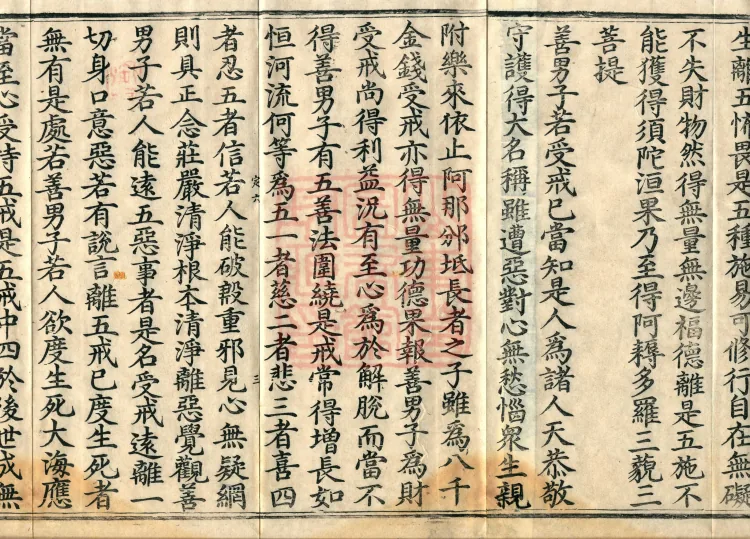 生離五怖畏是五種施易可修行自在無礙
不失財物然得無量無邊福德離是五施不
能獲得須陀洹果乃至得阿耨多羅三藐三
菩提
善男子若受戒已當知是人爲諸人天恭敬
守護得大名稱雖遭惡對心無愁惱衆生親
附樂來依止阿那邠坻長者之子雖爲八千
金錢受戒亦得無量功德果報善男子爲財
受戒尚得利益況有至心爲於解脫而當不
得善男子有五善法圍繞是戒常得增長如
恒河流何等爲五一者慈二者悲三者喜四
定六 三
者忍五者信若人能破殷重邪見心無疑網
則具正念莊嚴清淨根本清淨離惡覺觀善
男子若人能遠五惡事者是名受戒遠離一
切身口意惡若有說言離五戒已度生死者
無有是處若善男子若人欲度生死大海應
當至心受持五戒是五戒中四於後世成無